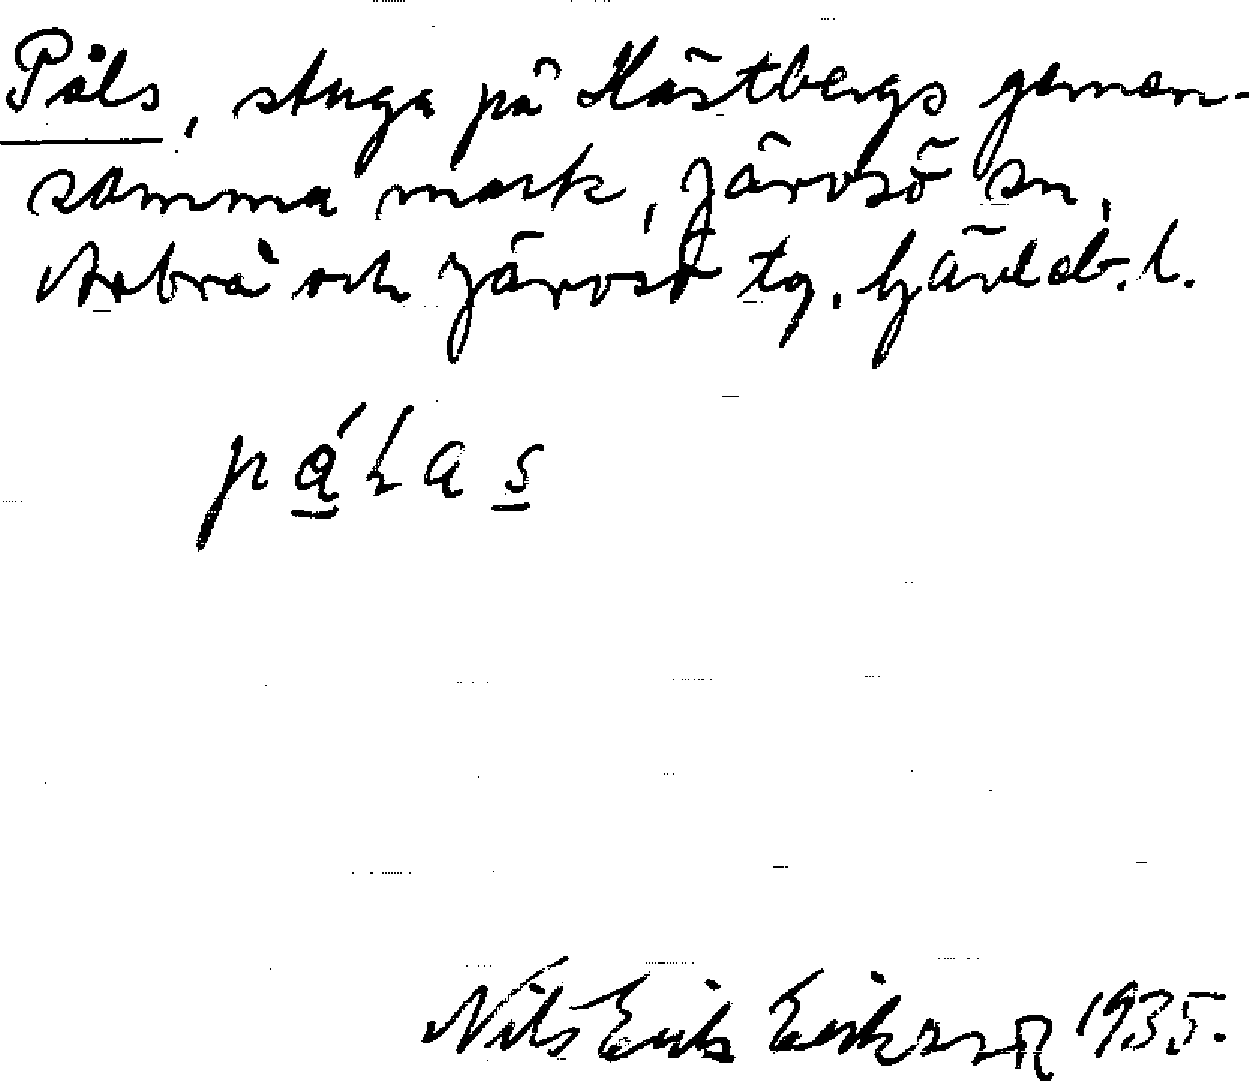 Påls, stuga på Hästbergs gemen-
samma mark, Järvsö sn,
Arbrå och Järvsö tg. Gävleb. l.
pålas
Nils Erik Eriksson 1935.